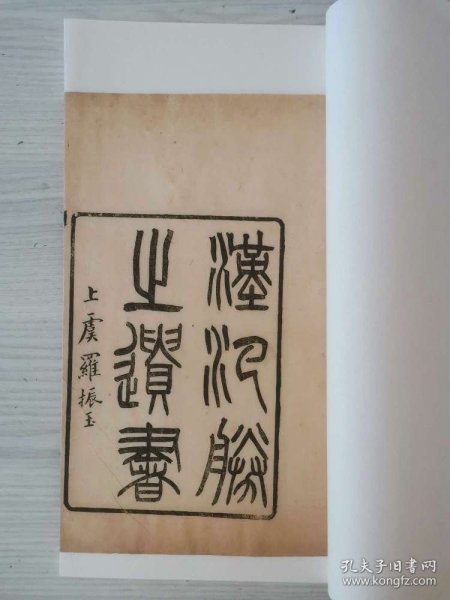 漢氾勝
之遺書
上虞羅振玉
孔夫子旧书网
www.kongfz.com